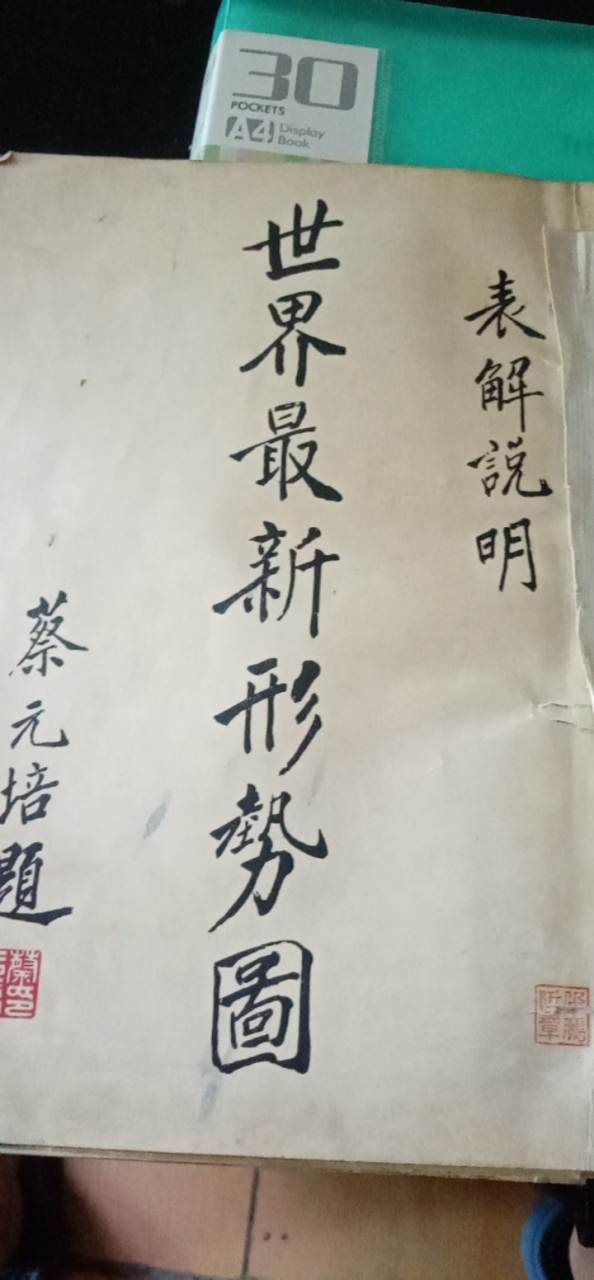 30
POCKETS
A4 Display
Book
表解説明
世界最新形勢圖
蔡元培題